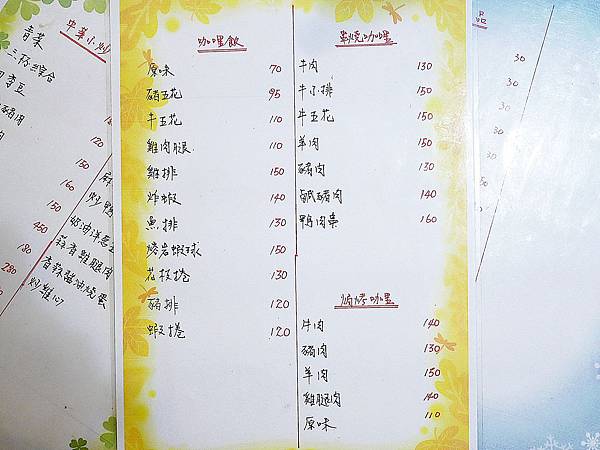 中華小炒
青菜
三杯綜合
四季豆
120
150
160
150
450
奶油洋蔥
180
蒜香雞腿肉
280
香蒜醬油燒蛋
炒雞心
咖哩飯
原味 70
豬五花 95
牛五花 110
雞肉腿 110
雞排 150
炸蝦 140
魚排 130
熔岩蝦球 150
花枝捲 130
豬排 120
蝦捲 120
串燒咖哩
牛肉 130
牛小排 150
牛五花 150
羊肉 150
豬肉 130
鹹豬肉 140
鴨肉串 160
焗烤咖哩
牛肉 140
豬肉 130
羊肉 150
雞腿肉 140
原味 110
品
30
30
30
30
30